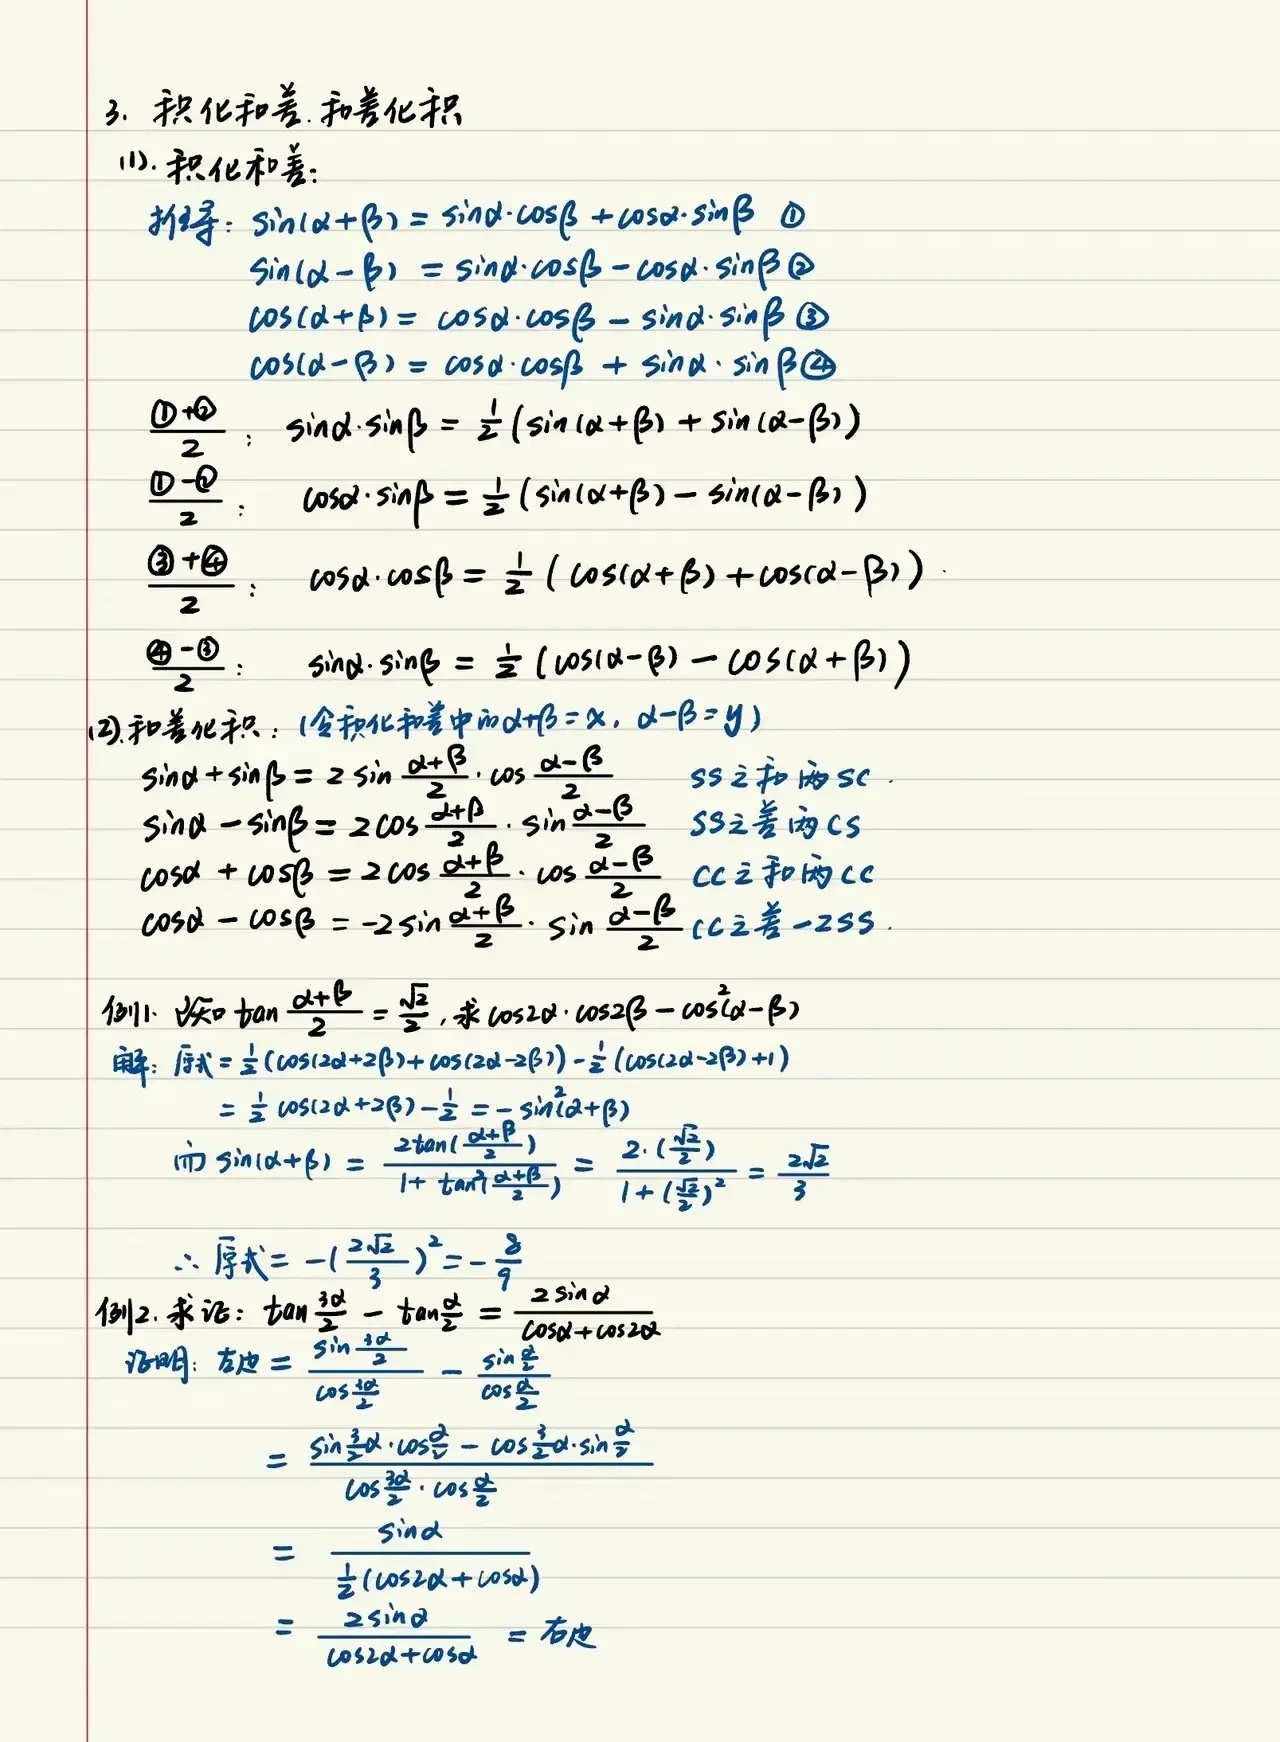 3. 积化和差.和差化积
(1).积化和差:
推导: sin(α+β) = sinα·cosβ + cosα·sinβ ①
sin(α-β) = sinα·cosβ - cosα·sinβ ②
cos(α+β) = cosα·cosβ - sinα·sinβ ③
cos(α-β) = cosα·cosβ + sinα·sinβ ④
(①+②)/2 : sinα·sinβ = 1/2 (sin(α+β) + sin(α-β))
(①-②)/2 : cosα·sinβ = 1/2 (sin(α+β) - sin(α-β))
(③+④)/2 : cosα·cosβ = 1/2 (cos(α+β) + cos(α-β)).
(④-③)/2 : sinα·sinβ = 1/2 (cos(α-β) - cos(α+β))
(2).和差化积: (令积化和差中的α+β=x, α-β=y)
sinα + sinβ = 2 sin (α+β)/2 · cos (α-β)/2 SS之和两SC.
sinα - sinβ = 2cos (α+β)/2 · sin (α-β)/2 SS之差两CS
cosα + cosβ = 2cos (α+β)/2 · cos (α-β)/2 CC之和两CC
cosα - cosβ = -2sin (α+β)/2 · sin (α-β)/2 CC之差-2SS.
例1. 已知 tan (α+β)/2 = √2/2, 求 cos2α·cos2β - cos²(α-β)
解: 原式 = 1/2 (cos(2α+2β) + cos(2α-2β)) - 1/2 (cos(2α-2β)+1)
= 1/2 cos(2α+2β) - 1/2 = -sin²(α+β)
而 sin(α+β) = 2tan((α+β)/2) / (1+tan²((α+β)/2)) = 2·(√2/2) / (1+(√2/2)²) = 2√2/3
∴ 原式 = -(2√2/3)² = -8/9
例2. 求证: tan 3α/2 - tan α/2 = 2sinα / (cosα+cos2α)
证明: 左边 = sin 3α/2 / cos 3α/2 - sin α/2 / cos α/2
= (sin 3/2 α·cos α/2 - cos 3/2 α·sin α/2) / (cos 3α/2 · cos α/2)
= sinα / (1/2 (cos2α+cosα))
= 2sinα / (cos2α+cosα) = 右边